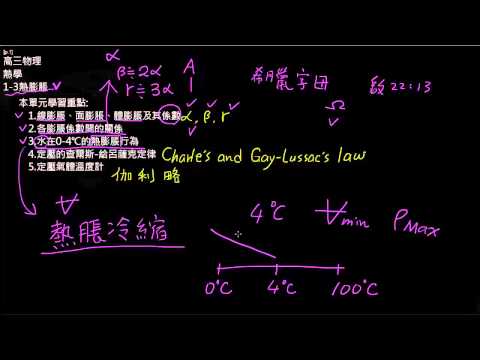 高三物理
熱學
1-3熱膨脹
本單元學習重點:
1.線膨脹、面膨脹、體膨脹及其係數 α, β, r
2.各膨脹係數間的關係
3.水在0-4℃的熱膨脹行為
4.定壓的查爾斯-給呂薩克定律 Charle's and Gay-Lussac's law
5.定壓氣體溫度計 伽利略
α
β≒2α
r≒3α
A
希臘字母
Ω
啟22:13
V
熱脹冷縮
4°C Vmin ρMax
0°C 4°C 100°C